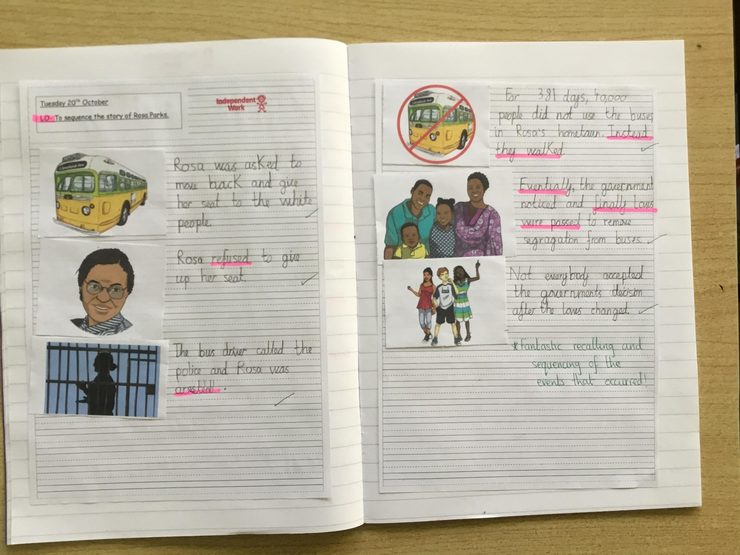 Tuesday 20th October
LO: To sequence the story of Rosa Parks.
Independent
Work
Rosa was asked to
move back and give
her seat to the white
people.
Rosa refused to give
up her seat.
The bus driver called the
police and Rosa was
arrested.
For 381 days, 40,000
people did not use the buses
in Rosa's hometown. Instead
they walked
Eventually, the government
noticed and finally laws
were passed to remove
segregation from buses.
Not everybody accepted
the governments decision
after the laws changed.
*Fantastic recalling and
sequencing of the
events that occurred!